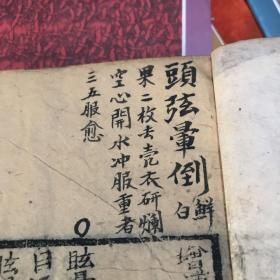 頭弦暈倒 鮮白
果二枚去壳衣研爛
空心開水冲服重者
三五服愈
眩暈